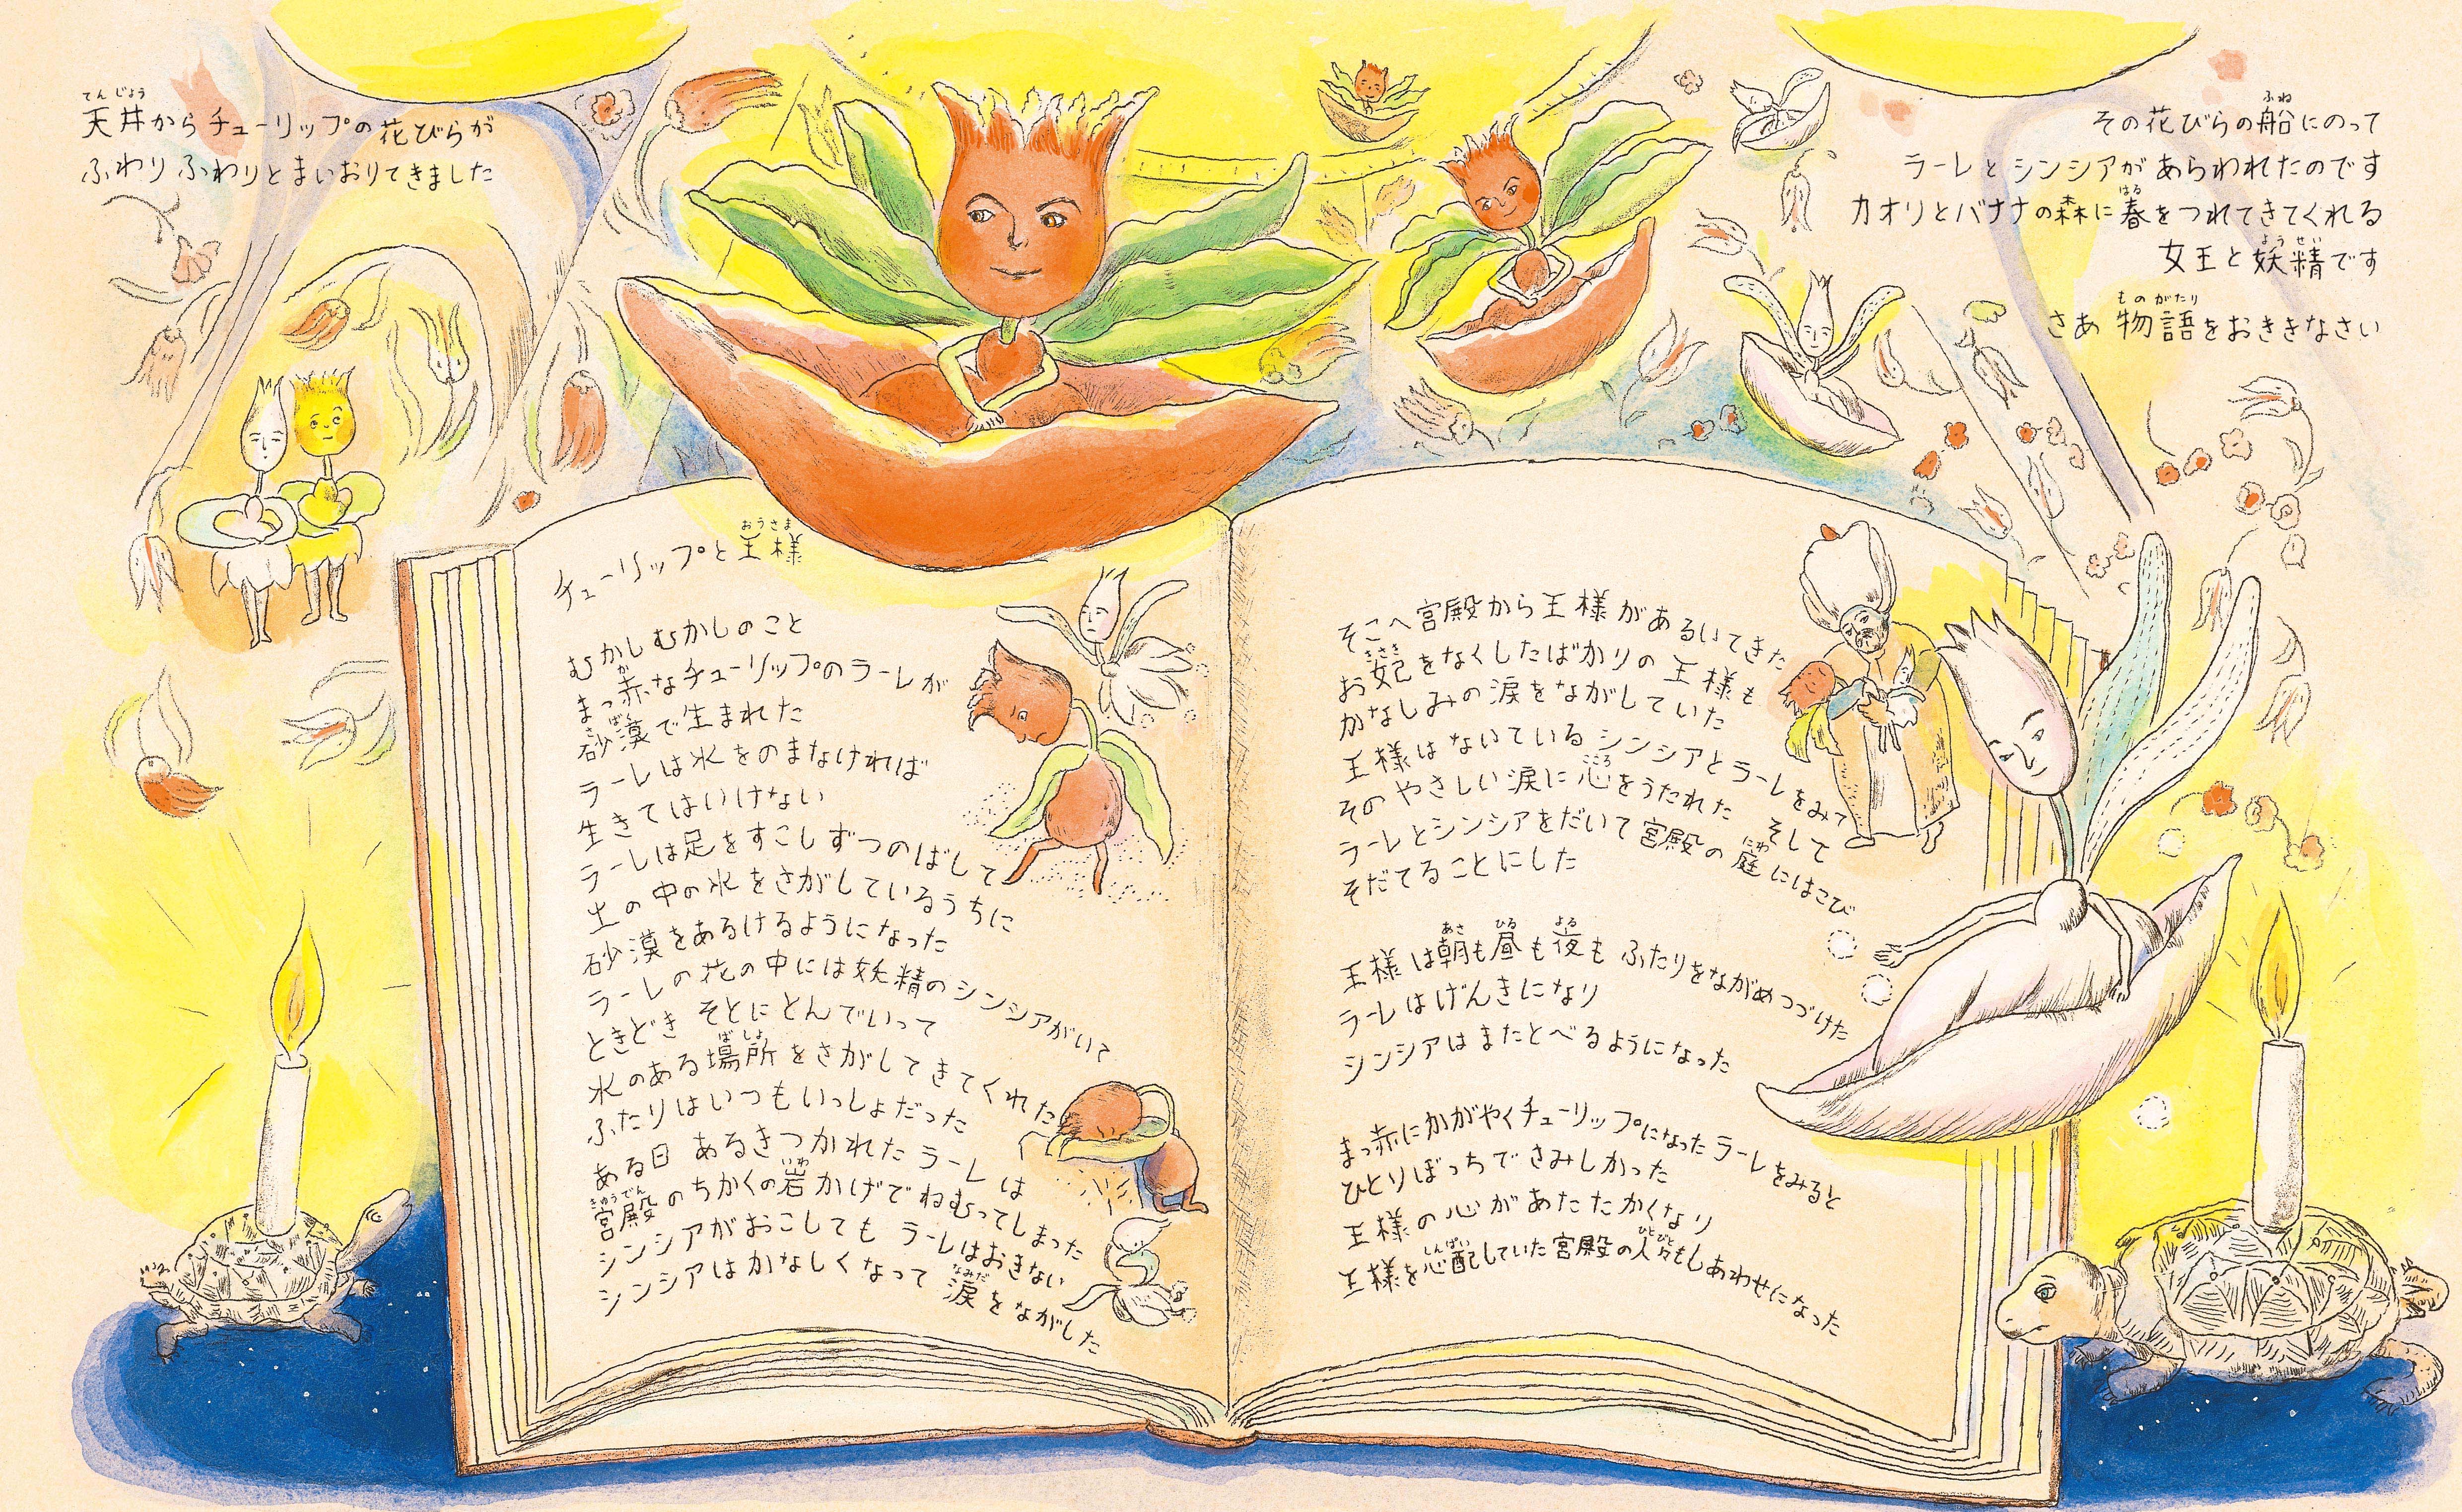 天井からチューリップの花びらが
ふわりふわりとまいおりてきました
その花びらの船にのって
ラーレとシンシアがあらわれたのです
カオリとバナナの森に春をつれてきてくれる
女王と妖精です
さあ物語をおききなさい
チューリップと王様
むかしむかしのこと
まっ赤なチューリップのラーレが
砂漠で生まれた
ラーレは水をのまなければ
生きてはいけない
ラーレは足をすこしずつのばして
土の中の水をさがしているうちに
砂漠をあるけるようになった
ラーレの花の中には妖精のシンシアがいて
ときどき そとにとんでいって
水のある場所をさがしてきてくれた
ふたりはいつもいっしょだった
ある日 あるきつかれたラーレは
宮殿のちかくの岩かげでねむってしまった
シンシアがおこしても ラーレはおきない
シンシアはかなしくなって涙をながした
そこへ宮殿から王様があるいてきた
お妃をなくしたばかりの王様も
かなしみの涙をながしていた
王様はないているシンシアとラーレをみて
そのやさしい涙に心をうたれた そして
ラーレとシンシアをだいて宮殿の庭にはこび
そだてることにした
王様は朝も昼も夜も ふたりをながめつづけた
ラーレはげんきになり
シンシアはまたとべるようになった
まっ赤にかがやくチューリップになったラーレをみると
ひとりぼっちでさみしかった
王様の心があたたかくなり
王様を心配していた宮殿の人々もしあわせになった